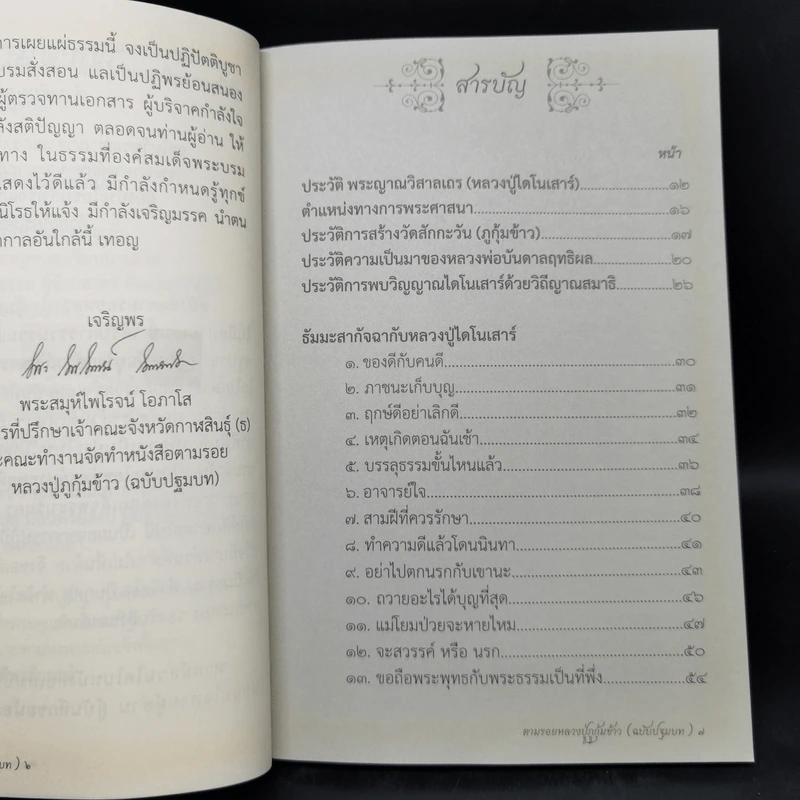 ารเผยแผ่ธรรมนี้ จงเป็นปฏิปัตติบูชา
บรมสั่งสอน แลเป็นปฏิพรย้อนสนอง
ผู้ตรวจทานเอกสาร ผู้บริจาคกำลังใจ
ังสติปัญญา ตลอดจนท่านผู้อ่าน ให้
ทาง ในธรรมที่องค์สมเด็จพระบรม
แสดงไว้ดีแล้ว มีกำลังกำหนดรู้ทุกข์
นิโรธให้แจ้ง มีกำลังเจริญมรรค นำตน
ากาลอันใกล้นี้ เทอญ
เจริญพร
พระสมุห์ไพโรจน์ โอภาโส
รที่ปรึกษาเจ้าคณะจังหวัดกาฬสินธุ์ (ธ)
ะคณะทำงานจัดทำหนังสือตามรอย
หลวงปู่ภูกุ้มข้าว (ฉบับปฐมบท)
บท ) ๖
สารบัญ
หน้า
ประวัติ พระญาณวิสาลเถร (หลวงปู่ไดโนเสาร์)...............................๑๒
ตำแหน่งทางการพระศาสนา......................................................๑๖
ประวัติการสร้างวัดสักกะวัน (ภูกุ้มข้าว).......................................๑๗
ประวัติความเป็นมาของหลวงพ่อบันดาลฤทธิผล............................๒๐
ประวัติการพบวิญญาณไดโนเสาร์ด้วยวิถีญาณสมาธิ.......................๒๖
ธัมมะสากัจฉากับหลวงปู่ไดโนเสาร์
๑. ของดีกับคนดี..........................................................๓๐
๒. ภาชนะเก็บบุญ.......................................................๓๑
๓. ฤกษ์ดีอย่าเลิกดี......................................................๓๒
๔. เหตุเกิดตอนฉันเช้า..................................................๓๔
๕. บรรลุธรรมขั้นไหนแล้ว.............................................๓๖
๖. อาจารย์ใจ.............................................................๓๘
๗. สามฝีที่ควรรักษา....................................................๔๐
๘. ทำความดีแล้วโดนนินทา..........................................๔๑
๙. อย่าไปตกนรกกับเขานะ...........................................๔๓
๑๐. ถวายอะไรได้บุญที่สุด............................................๔๖
๑๑. แม่โยมป่วยจะหายไหม..........................................๔๗
๑๒. จะสวรรค์ หรือ นรก..............................................๕๐
๑๓. ขอถือพระพุทธกับพระธรรมเป็นที่พึ่ง.......................๕๔
ตามรอยหลวงปู่ภูกุ้มข้าว (ฉบับปฐมบท ) ๗